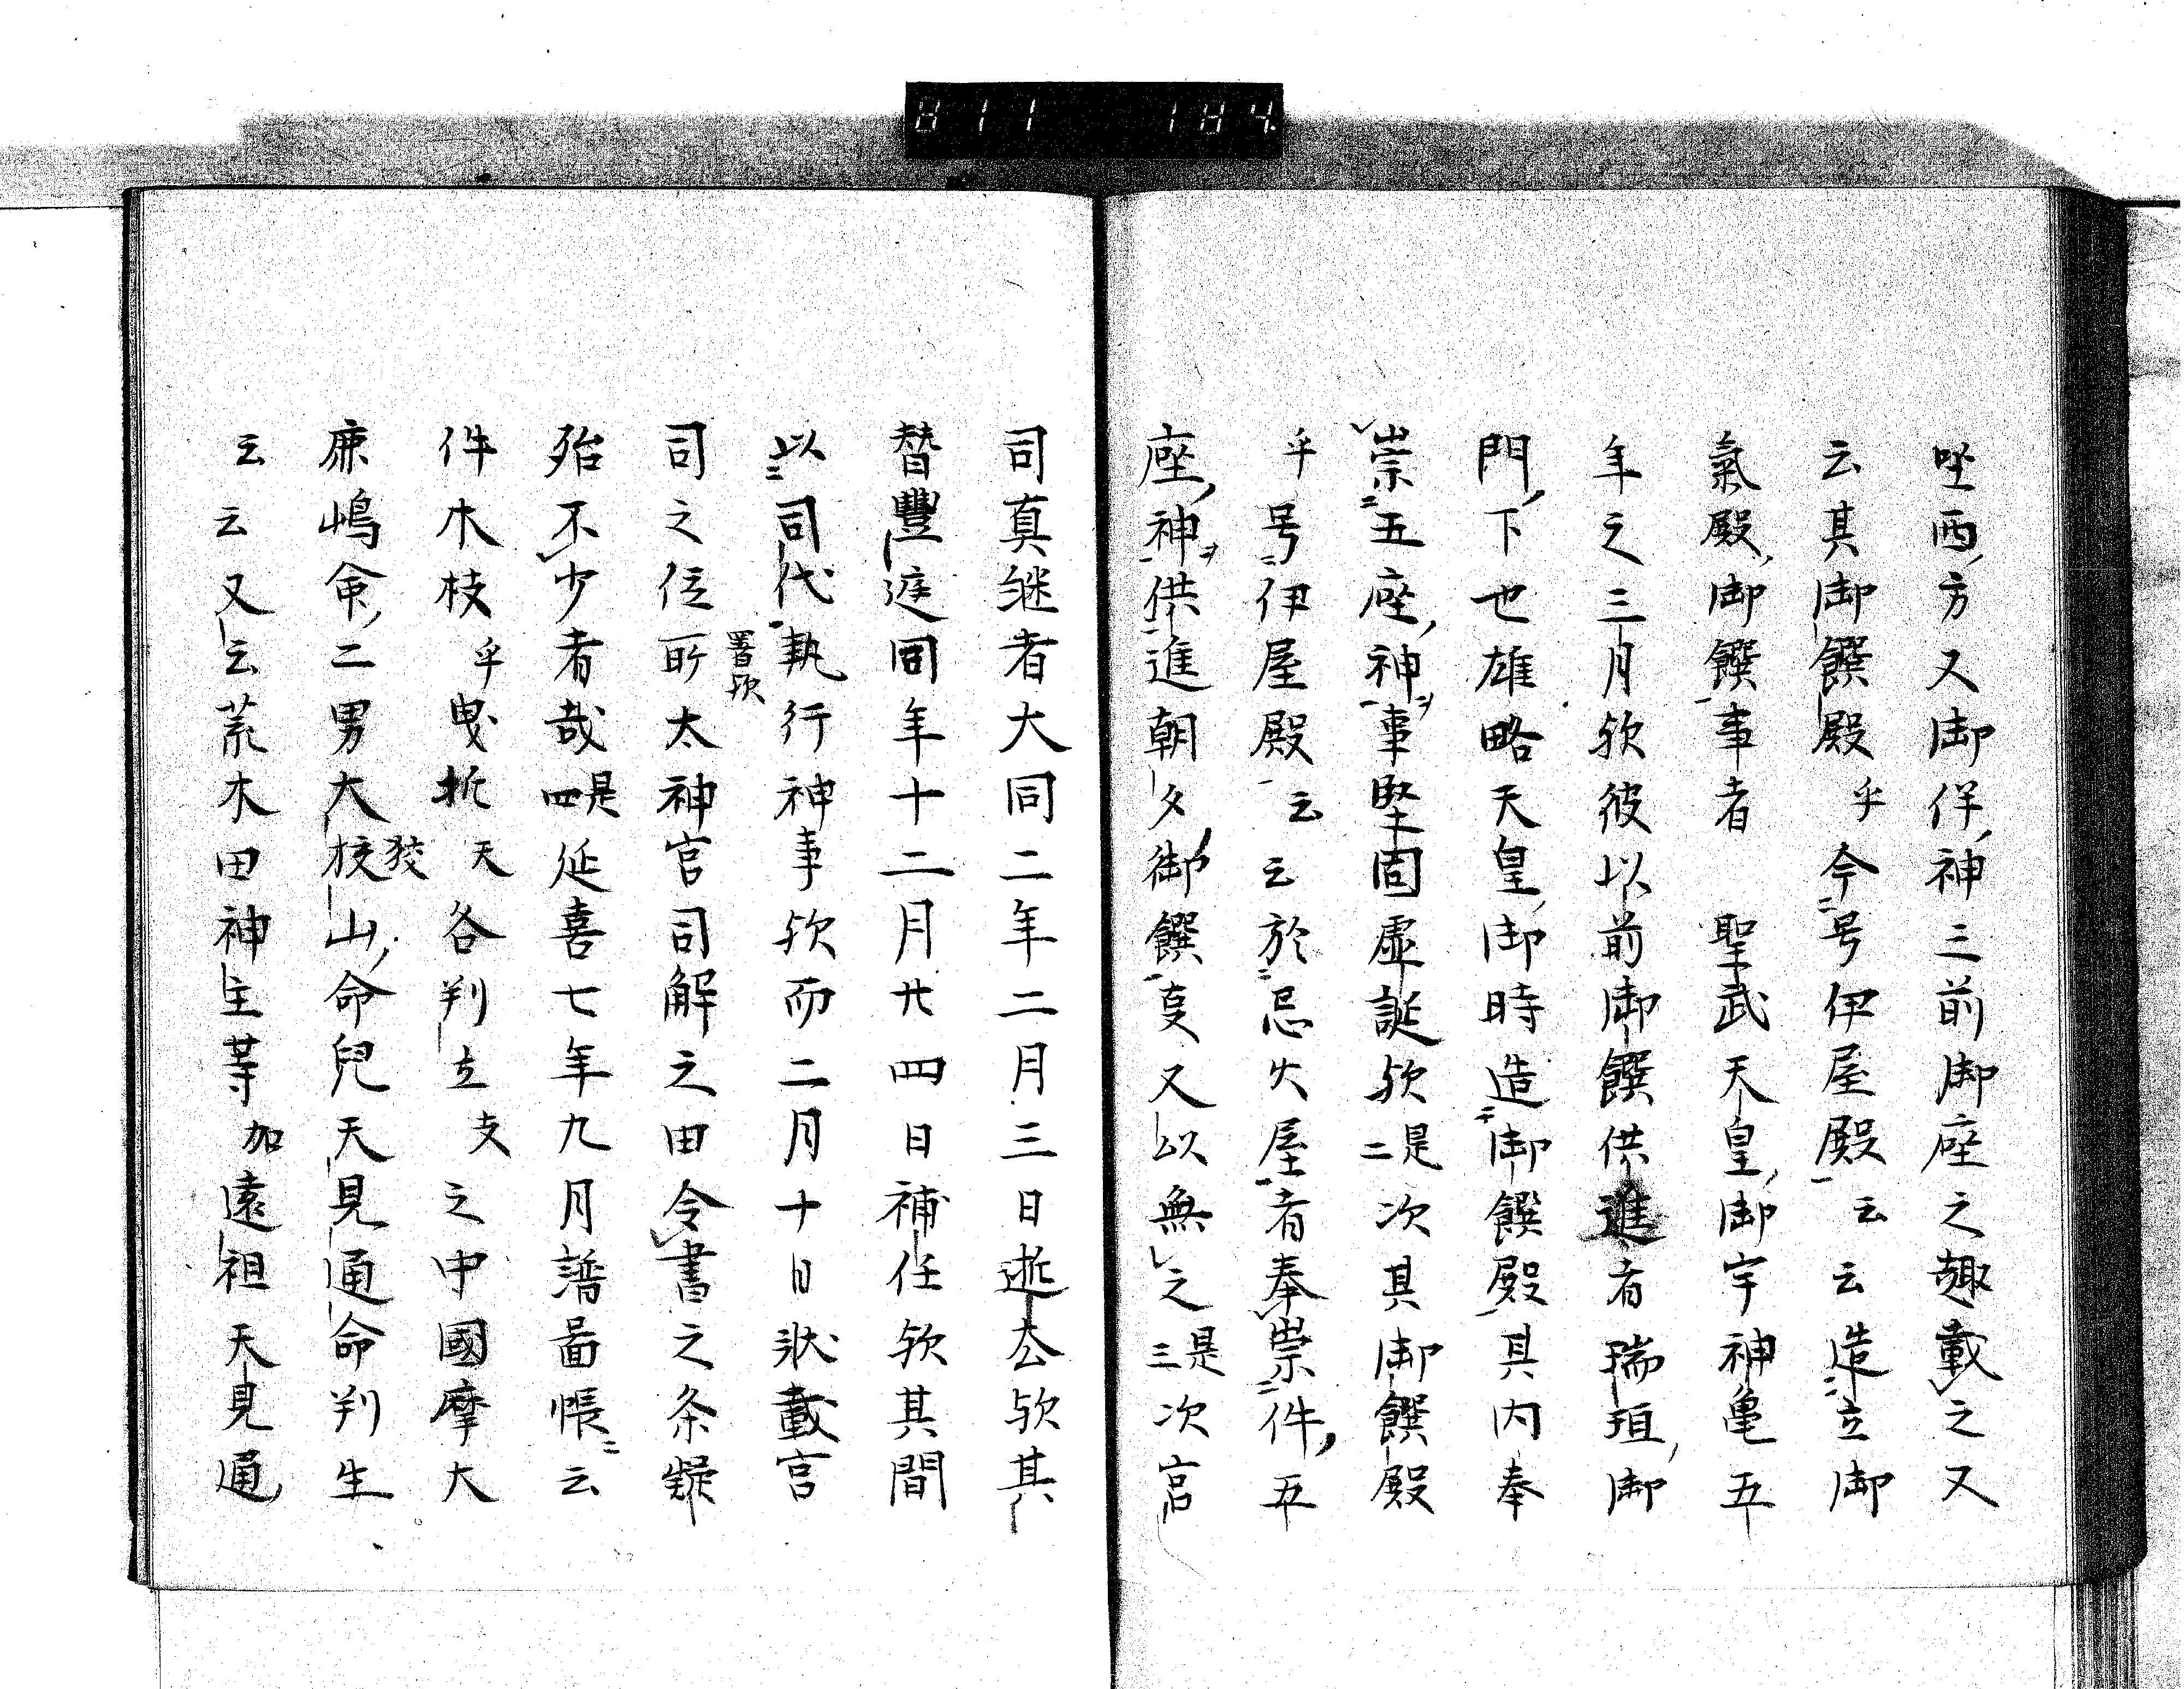 811 184.
坐西方又御伴神三前御座之趣載之又
云其御饌殿乎今号伊屋殿云云造立御
氣殿御饌事者 聖武天皇御宇神亀五
年之三月欤彼以前御饌供進者瑞垣御
門下也雄略天皇御時造御饌殿其内奉
崇五座神事堅固虚誕欤是二次其御饌殿
乎号伊屋殿云云於忌火屋者奉崇件五
座神ヲ供進朝夕御饌㕝又以無之是三次宮
司真継者大同二年二月三日逝去欤其
替豊庭同年十二月廿四日補任欤其間
以司代執行神事欤而二月十日状載宮
司之位所署欤太神宮司解之田令書之条疑
殆不少者哉是四延喜七年九月譜啚帳云
件木枝乎曳折天各判立支之中國摩大
鹿嶋命二男大挍狡山命兒天見通命判生
云云又云荒木田神主等加遠祖天見通